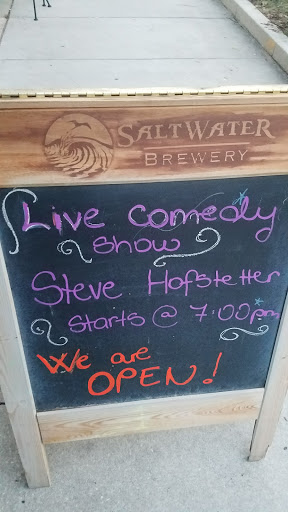 SALTWATER
BREWERY
Live comedy
Show
Steve Hofstetter
Starts @ 7:00pm
We are
OPEN!